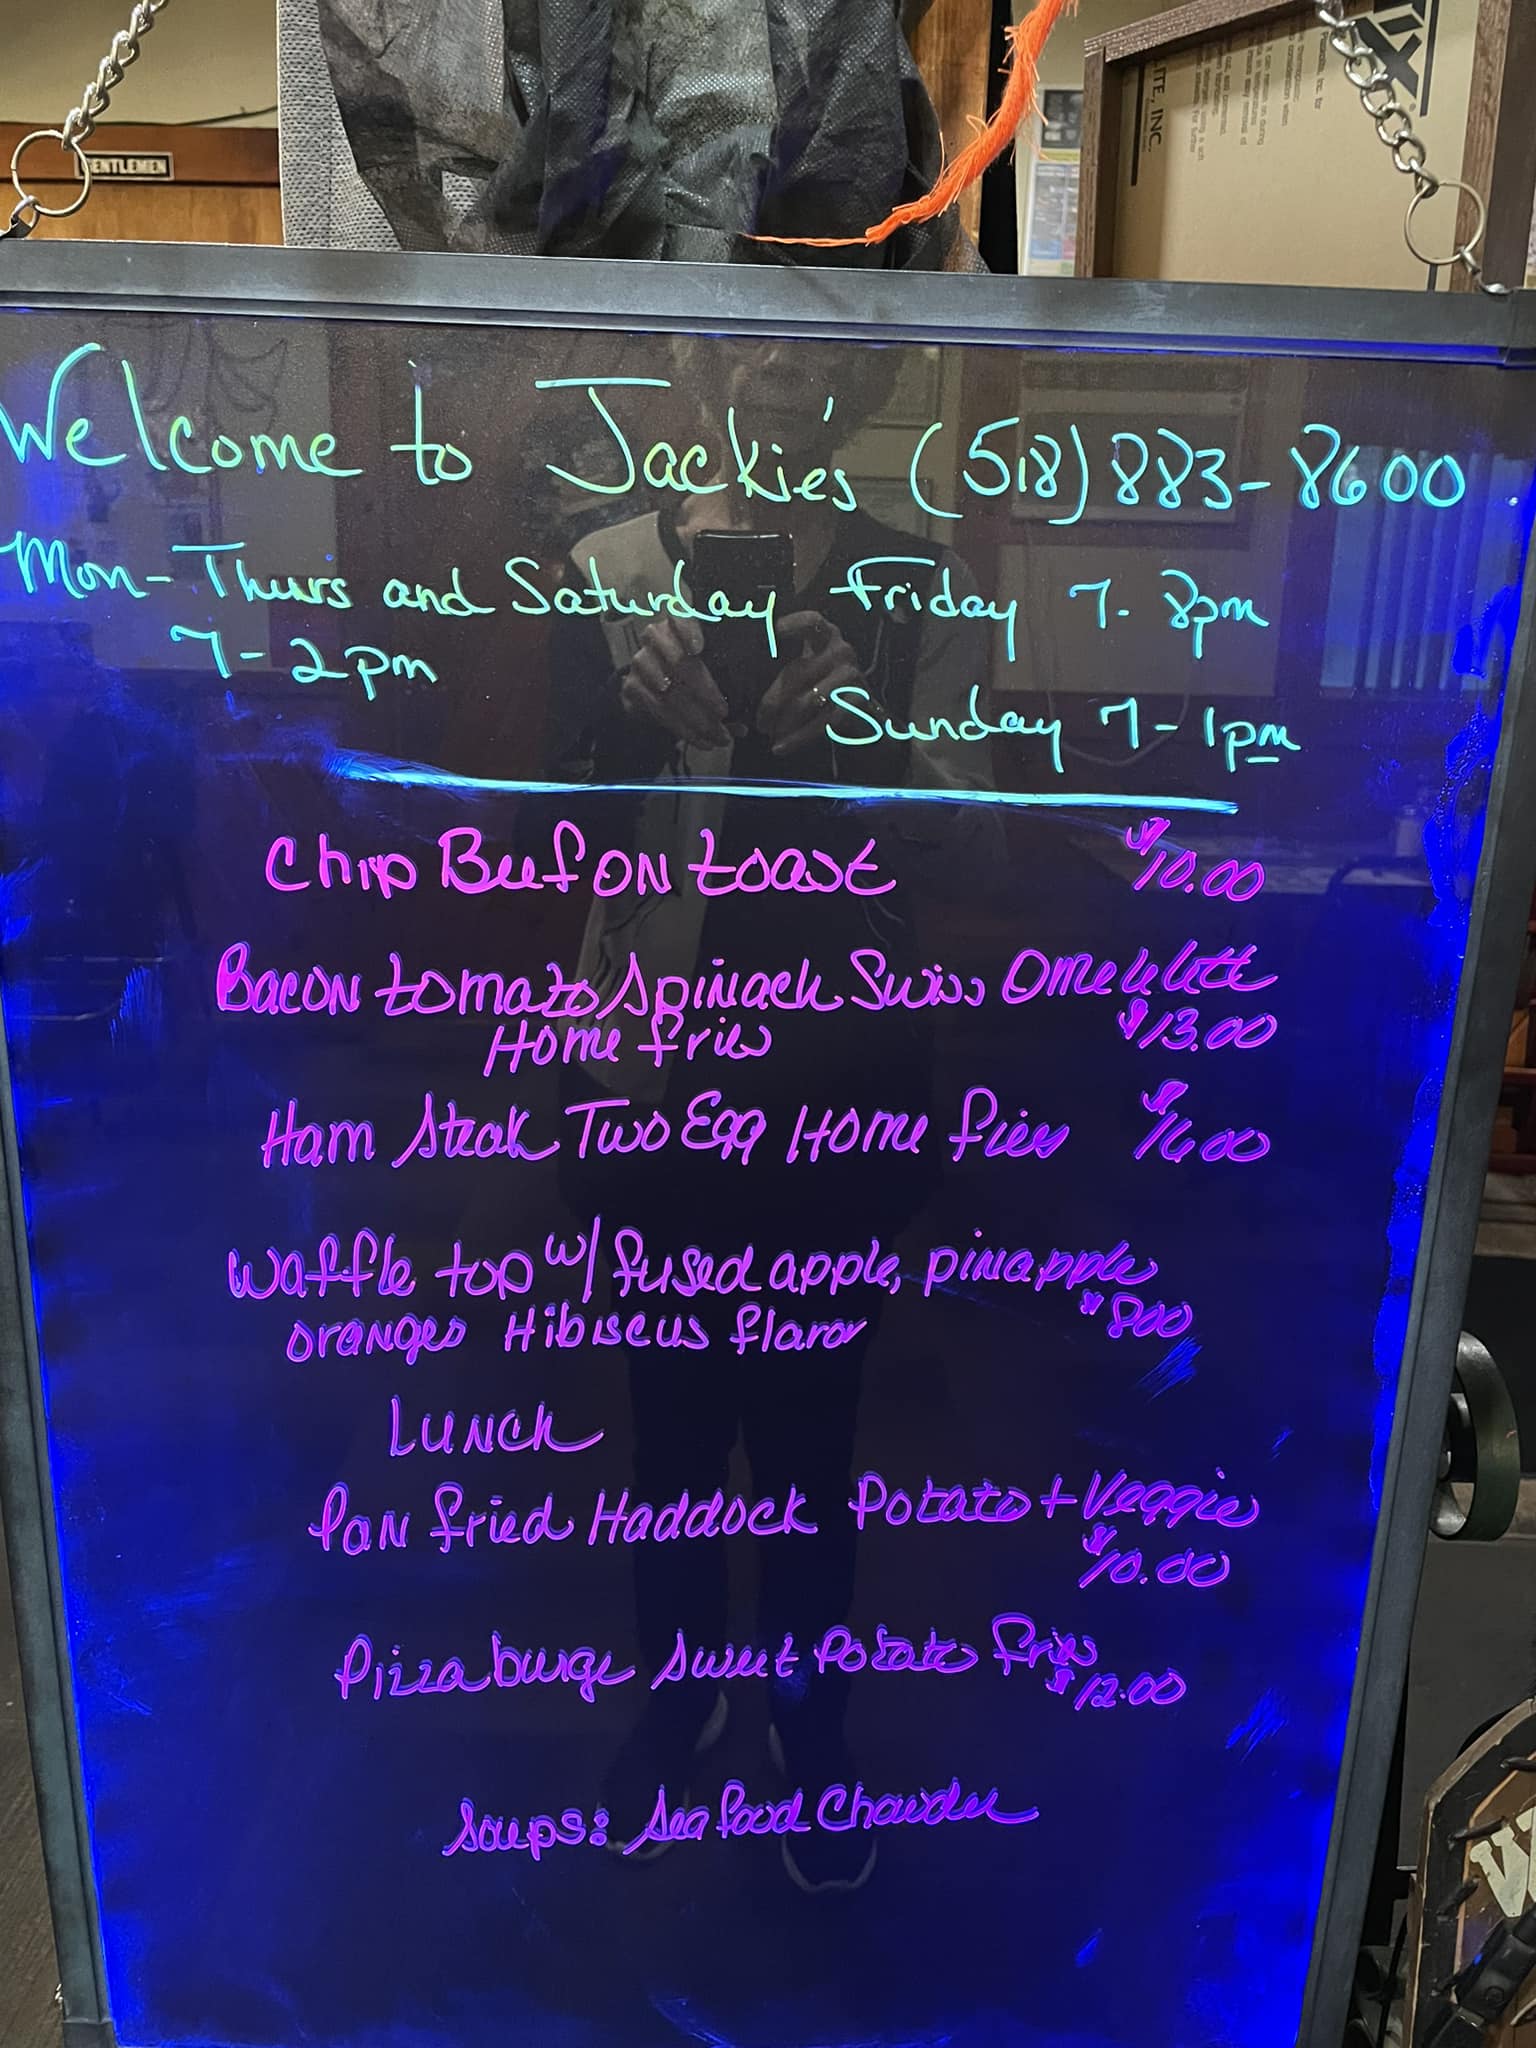 GENTLEMEN
TIX®
LITE, INC.
Welcome to Jackie's (518) 883-8600
Mon-Thurs and Saturday Friday 7-8pm
7-2pm
Sunday 7-1pm
Chip Beef on toast $10.00
Bacon tomato Spinach Swiss Omelette
Home fries $13.00
Ham Steak Two Egg Home fries
Waffle top w/ fused apple, pineapple
oranges Hibiscus flavor $800
Lunch
Pan fried Haddock Potato + Veggie
$10.00
Pizza burge Sweet Potato fries
$12.00
Soups: Seafood Chowder